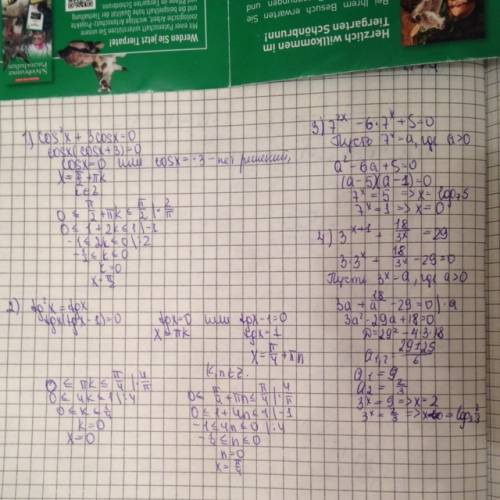 Werden Sie jetzt Tierpate!
Mit einer Patenschaft unterstützen Sie unsere
Herzlich willkommen im
Tiergarten Schönbrunn!
Bei Ihrem Besuch erwarten Sie
1) cos²x + 3cosx = 0
cosx(cosx+3)=0
cosx=0 или cosx=-3 - нет решений,
x = π/2 + πk
k∈Z
0 ≤ π/2 + πk ≤ π/2 | · 2/π
0 ≤ 1 + 2k ≤ 1 | -1
-1 ≤ 2k ≤ 0 | :2
-1/2 ≤ k ≤ 0
k=0
x = π/2
2) tg²x = tgx
tgx(tgx-1)=0
tgx=0 или tgx-1=0
x = πk tgx=1
x = π/4 + πn
k, n ∈ Z.
0 ≤ πk ≤ π/4 | · 4/π
0 ≤ 4k ≤ 1 | :4
0 ≤ k ≤ 1/4
k=0
x=0
0 ≤ π/4 + πn ≤ π/4 | · 4/π
0 ≤ 1 + 4n ≤ 1 | -1
-1 ≤ 4n ≤ 0 | :4
-1/4 ≤ n ≤ 0
n=0
x = π/4
3) 7^2x - 6·7^x + 5 = 0
Пусть 7^x = a, где a>0
a² - 6a + 5 = 0
(a-5)(a-1)=0
7^x = 5 => x = log₇5
7^x = 1 => x = 0
4) 3^x+1 + 18/3^x = 29
3·3^x + 18/3^x - 29 = 0
Пусть 3^x = a, где a>0
3a + 18/a - 29 = 0 | · a
3a² - 29a + 18 = 0
D = 29² - 4·3·18
a₁,₂ = 29±25/6
a₁ = 9
a₂ = 2/3
3^x = 9 => x = 2
3^x = 2/3 => x = log₃ 2/3